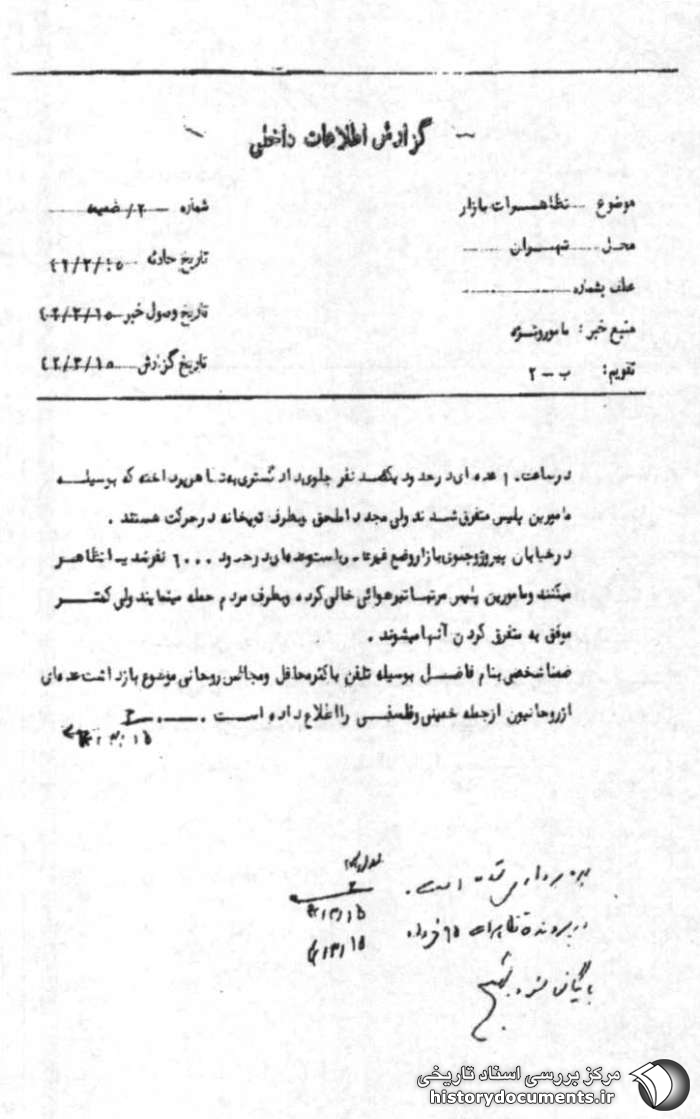 گزارش اطلاعات داخلی
موضوع تظاهرات بازار
شماره ۲/ ضمیمه
محل تهران
تاریخ حادثه ۴۲/۳/۱۵
عطف بشماره
تاریخ وصول خبر ۴۲/۳/۱۵
منبع خبر: مامور ویژه
تاریخ گزارش ۴۲/۳/۱۵
تقویم: ب - ۲
در ساعت ۱۰ عده ای در حدود یکصد نفر جلوی دادگستری به تظاهر پرداخته که بوسیله
مامورین پلیس متفرق شدند ولی مجددا ملحق و بطرف توپخانه در حرکت هستند .
در خیابان بوذرجمهری بازار وضع غیرعادی است و عده ای در حدود ۶۰۰۰ نفر شدیدا تظاهر
میکنند و مامورین پلیس مرتبا تیر هوائی خالی کرده و بطرف مردم حمله مینمایند ولی کمتر
موفق به متفرق کردن آنها میشوند .
ضمنا شخصی بنام فاضل بوسیله تلفن باکثر محافل و مجالس روحانی موضوع بازداشت عده ای
از روحانیون از جمله خمینی و فلسفی را اطلاع داده است .
۴۲/۳/۱۵
بهره برداری شده است .
در پرونده تظاهرات ۱۵ خرداد
۴۲/۳/۱۵
۴۲/۳/۱۵
بایگانی شود
مرکز بررسی اسناد تاریخی
historydocuments.ir